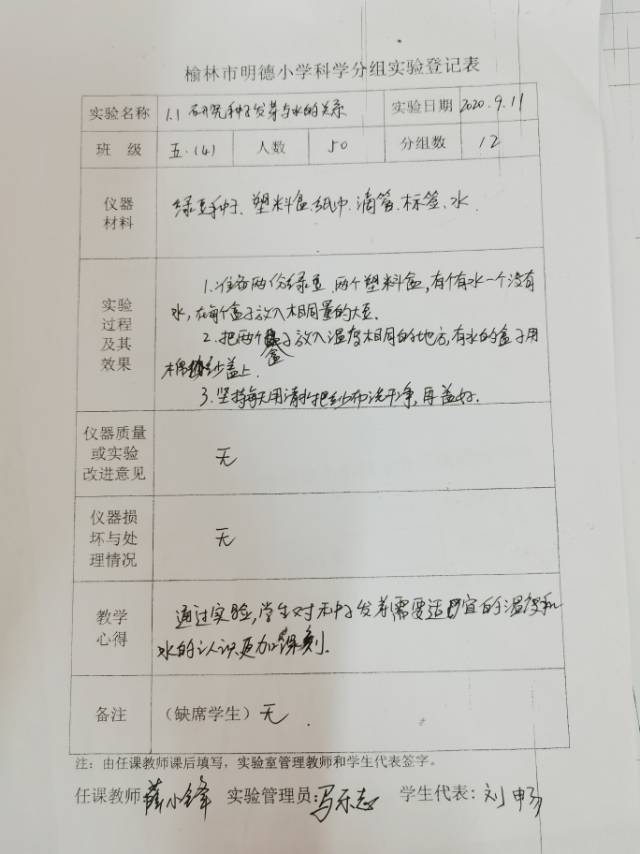 榆林市明德小学科学分组实验登记表
实验名称 1.1 研究种子发芽与水的关系 实验日期 2020.9.11
班 级 五.(4) 人数 50 分组数 12
仪器材料 绿豆种子、塑料盒、纸巾、滴管、标签、水.
实验过程及其效果
1.准备两份绿豆、两个塑料盒,有个有水一个没有
水,在每个盒子放入相同量的大豆.
2.把两个盒子放入温度相同的地方,有水的盒子用
棉纱盖上.
3.坚持每天用清水把纱布洗干净,再盖好.
仪器质量或实验改进意见 无
仪器损坏与处理情况 无
教学心得
通过实验,学生对种子发芽需要适宜的温度和
水的认识更加深刻.
备注 (缺席学生) 无.
注:由任课教师课后填写,实验室管理教师和学生代表签字。
任课教师:薛小锋 实验管理员:马乐志 学生代表:刘畅